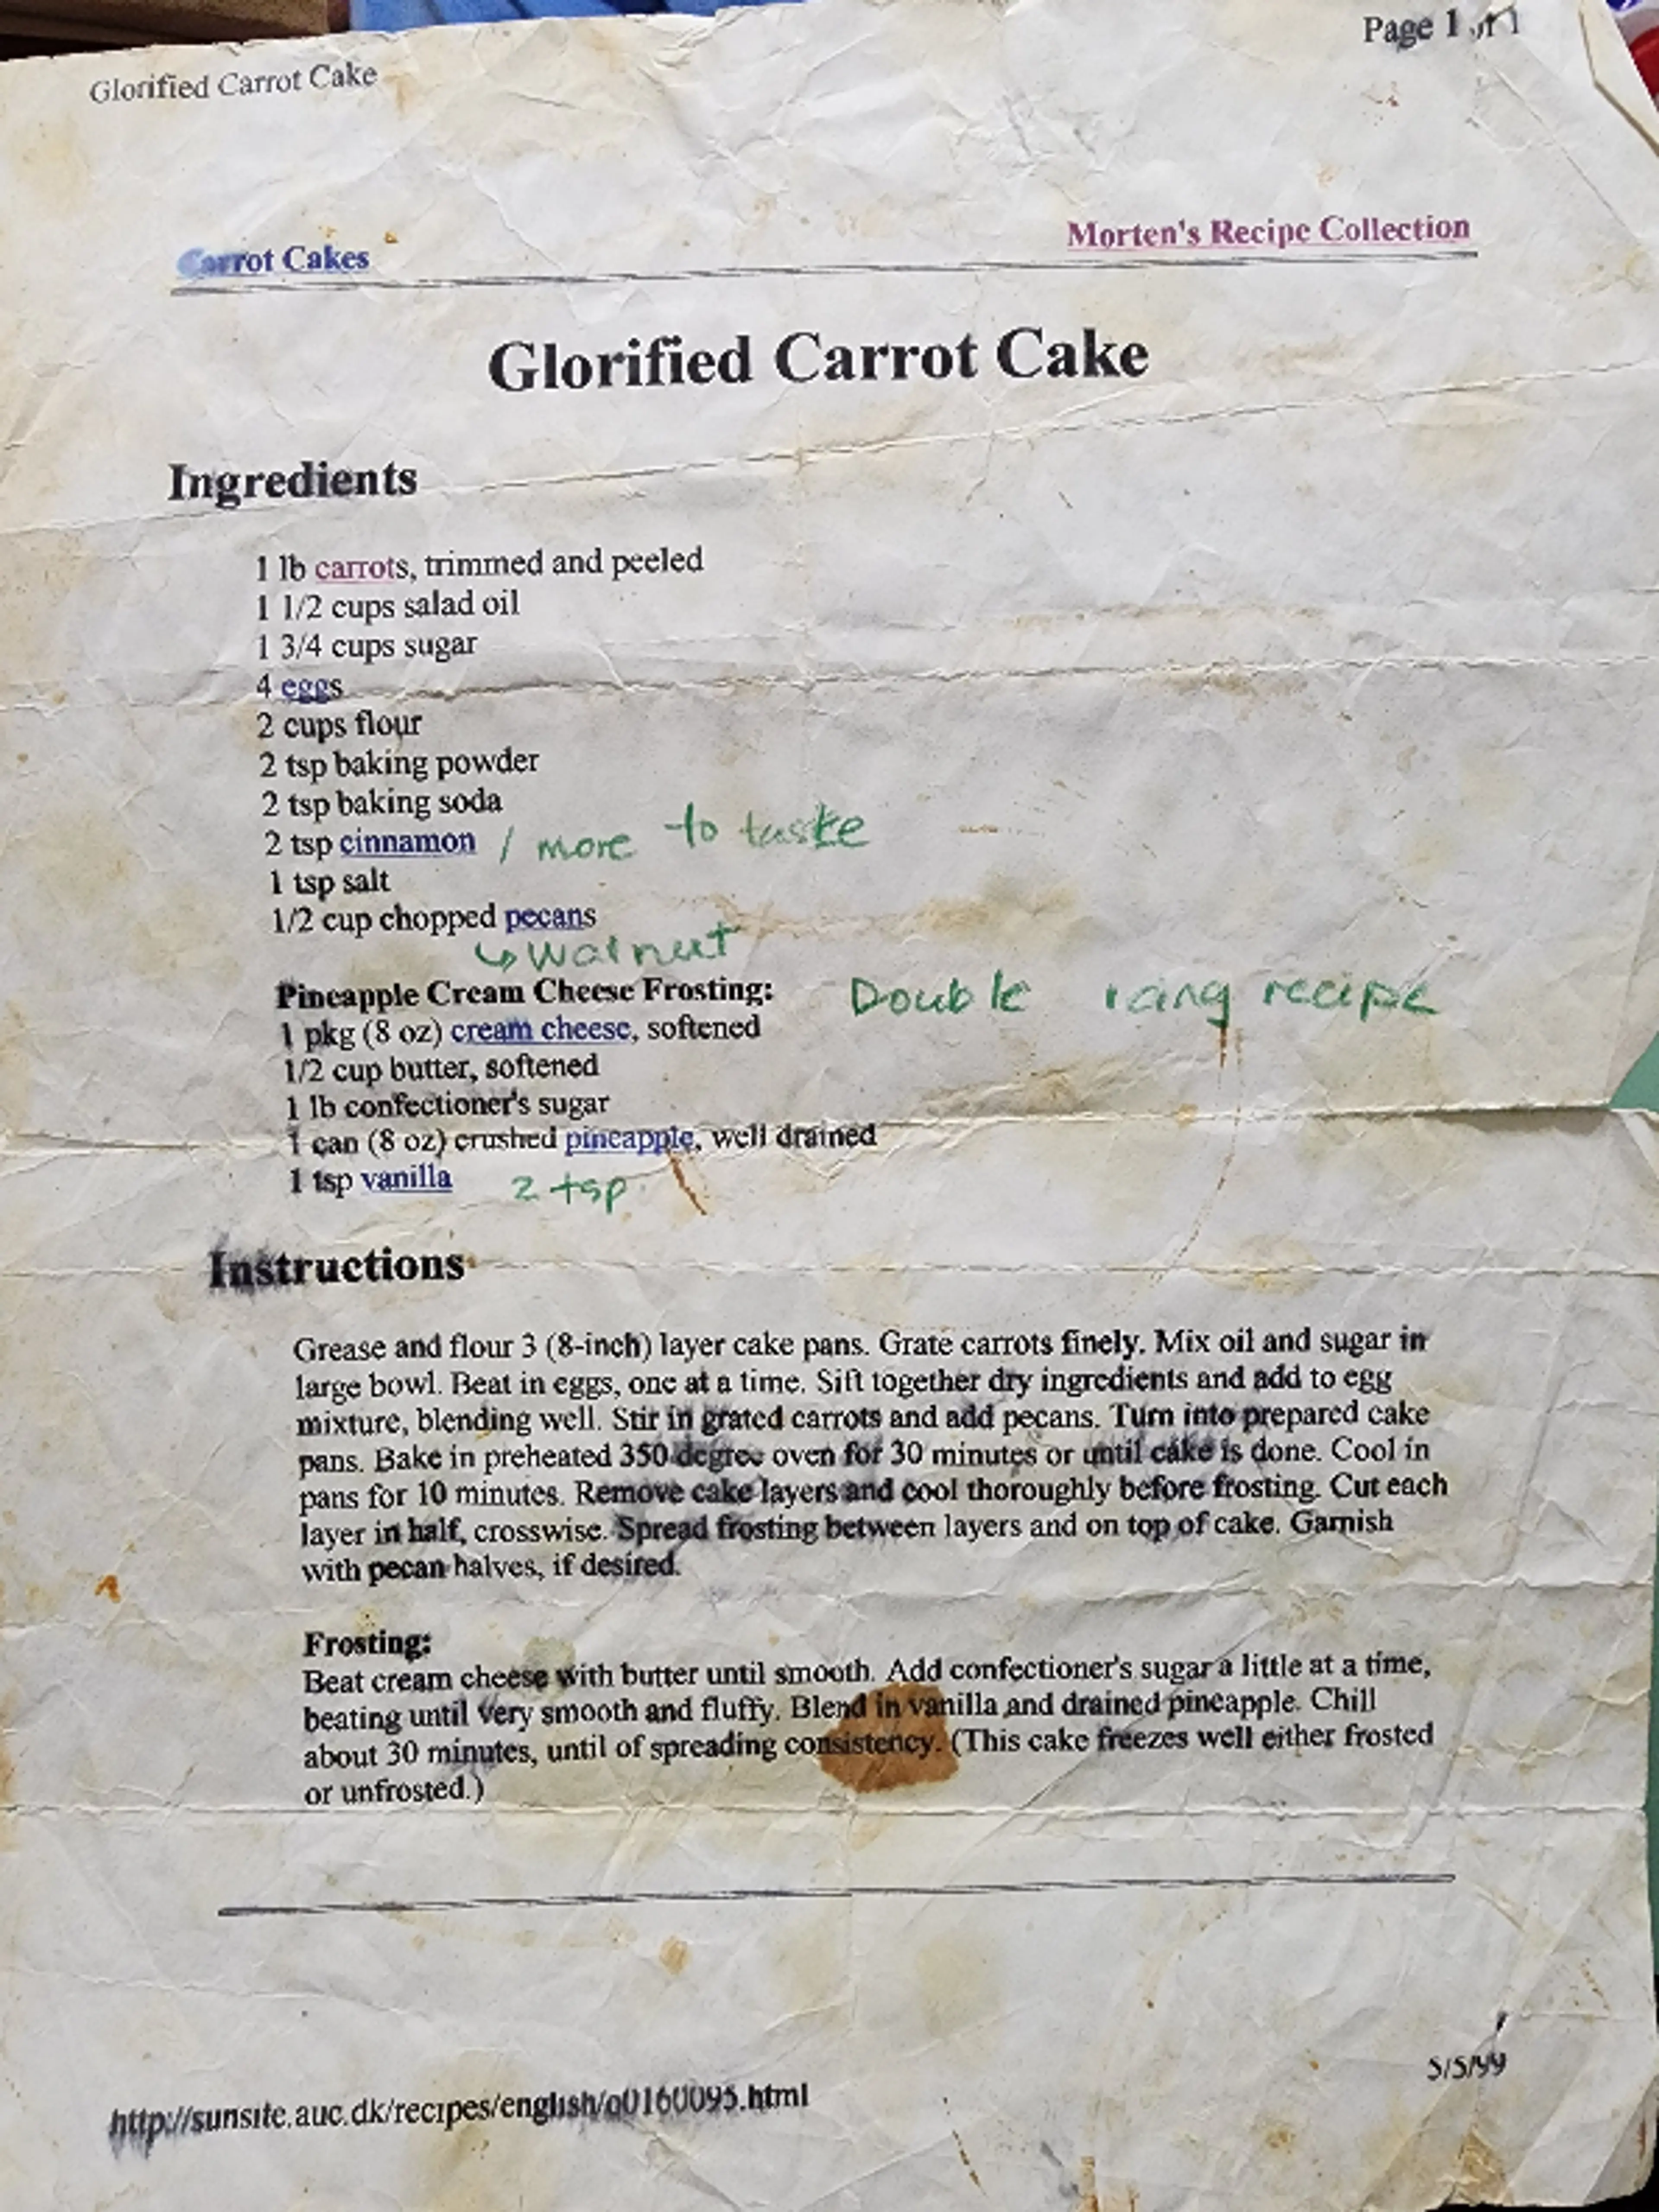 Page 1 of 1
Glorified Carrot Cake
Carrot Cakes
Morten's Recipe Collection
Glorified Carrot Cake
Ingredients
1 lb carrots, trimmed and peeled
1 1/2 cups salad oil
1 3/4 cups sugar
4 eggs
2 cups flour
2 tsp baking powder
2 tsp baking soda
2 tsp cinnamon / more to taste
1 tsp salt
1/2 cup chopped pecans
↳ walnut
Pineapple Cream Cheese Frosting: Double icing recipe
1 pkg (8 oz) cream cheese, softened
1/2 cup butter, softened
1 lb confectioner's sugar
1 can (8 oz) crushed pineapple, well drained
1 tsp vanilla 2 tsp
Instructions
Grease and flour 3 (8-inch) layer cake pans. Grate carrots finely. Mix oil and sugar in
large bowl. Beat in eggs, one at a time. Sift together dry ingredients and add to egg
mixture, blending well. Stir in grated carrots and add pecans. Turn into prepared cake
pans. Bake in preheated 350 degree oven for 30 minutes or until cake is done. Cool in
pans for 10 minutes. Remove cake layers and cool thoroughly before frosting. Cut each
layer in half, crosswise. Spread frosting between layers and on top of cake. Garnish
with pecan halves, if desired.
Frosting:
Beat cream cheese with butter until smooth. Add confectioner's sugar a little at a time,
beating until very smooth and fluffy. Blend in vanilla and drained pineapple. Chill
about 30 minutes, until of spreading consistency. (This cake freezes well either frosted
or unfrosted.)
5/5/99
http://sunsite.auc.dk/recipes/english/o0160095.html